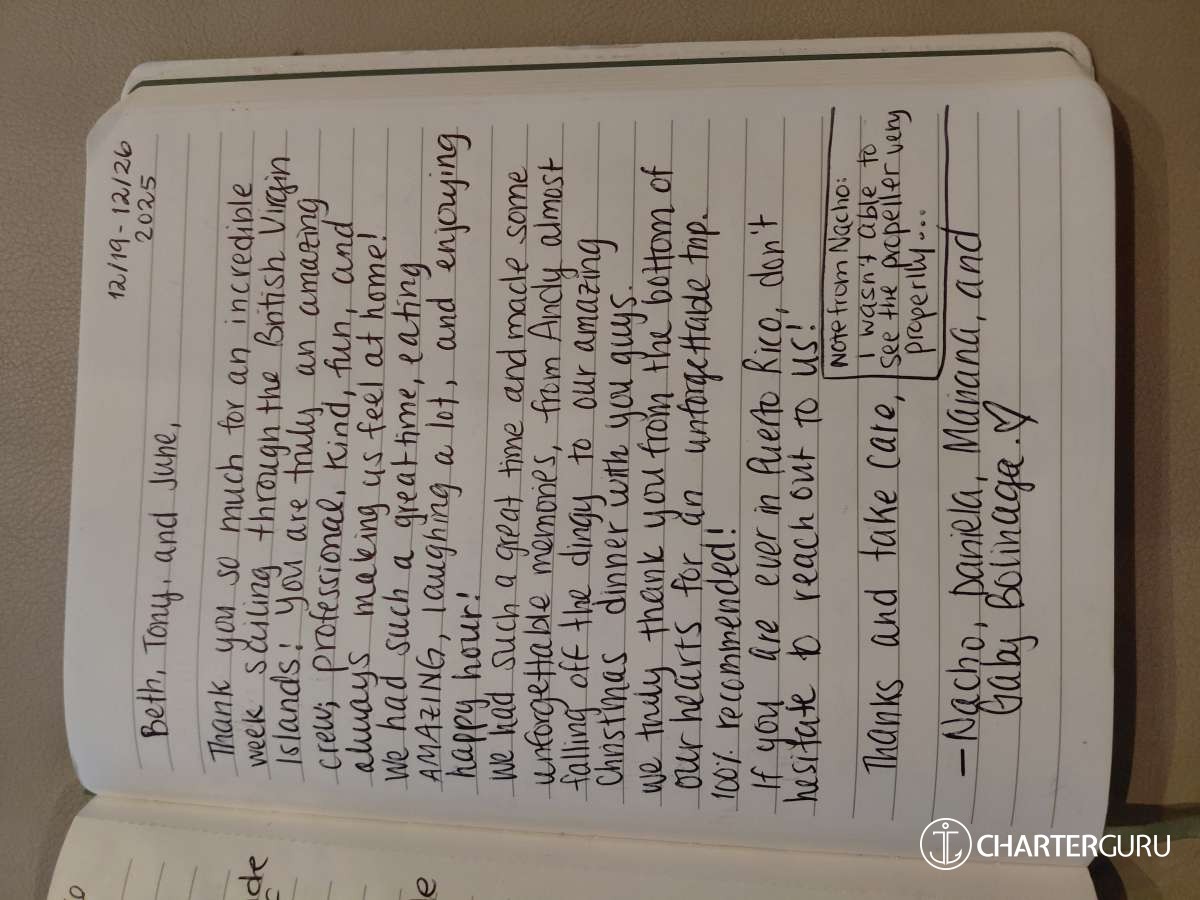 12/19 - 12/26
2025
Beth, Tony, and June,
Thank you so much for an incredible
week sailing through the British Virgin
Islands! You are truly an amazing
crew; professional, kind, fun, and
always making us feel at home!
We had such a great time, eating
AMAZING, laughing a lot, and enjoying
happy hour!
We had such a great time and made some
unforgettable memories, from Andy almost
falling off the dingy to our amazing
Christmas dinner with you guys.
We truly thank you from the bottom of
our hearts for an unforgettable trip.
100% recommended!
If you are ever in Puerto Rico, don't
hesitate to reach out to us!
Note from Nacho:
I wasn't able to
see the propeller very
properlly...
Thanks and take care,
- Nacho, Daniela, Mariana, and
Gaby Bolinaga. ♡
CHARTERGURU